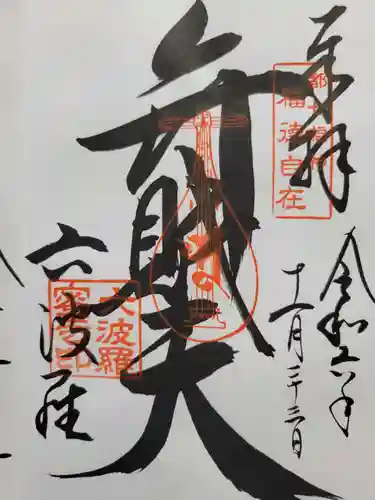 奉拝
都七福神
福徳自在
令和六年
十一月三十三日
弁財天
六波羅
六波羅蜜寺印